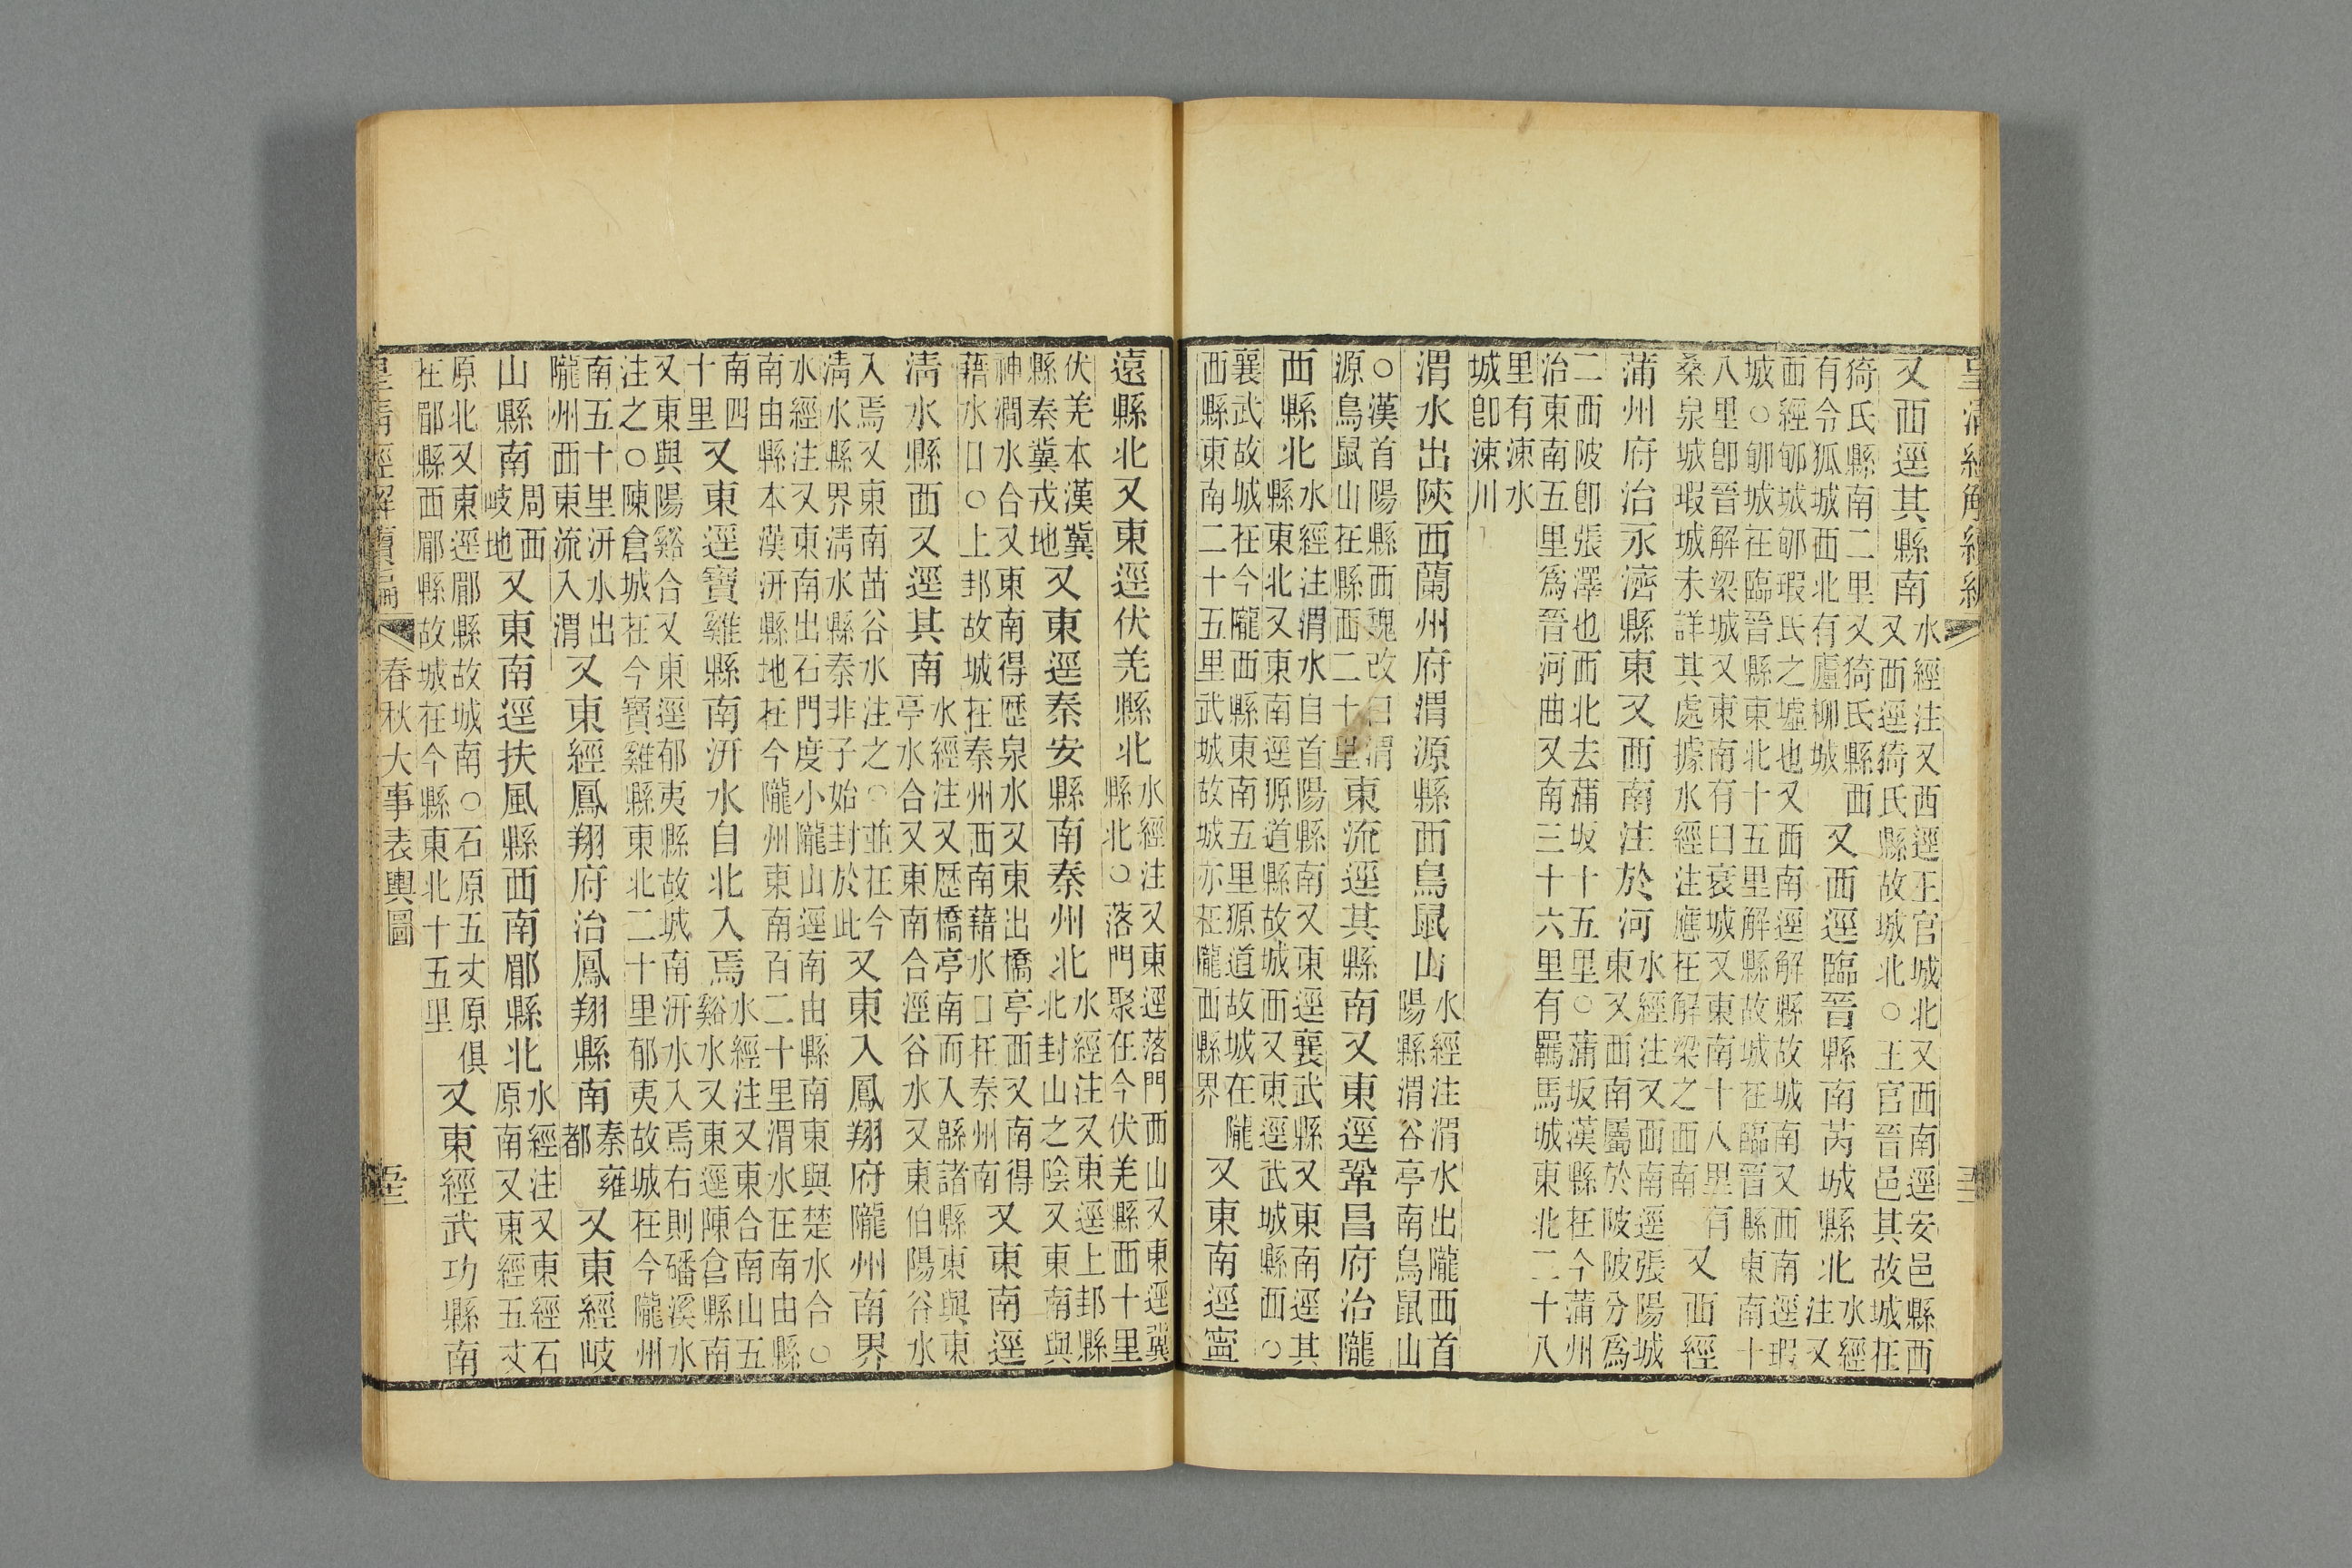 又西逕其縣南水經注又西逕王官城北又西南逕安邑縣西
又西逕猗氏縣故城北○王官晉邑其故城在
猗氏縣南二里又猗氏縣西
有令狐城西北有廬柳城又西逕臨晉縣南芮城縣北水經
注又
西經郇城郇瑕氏之墟也又西南逕解縣故城南又西南逕瑕
城○郇城在臨晉縣東北十五里解縣故城在臨晉縣東南十
八里卽晉解梁城又東南有曰衰城又東南十八里有
桑泉城瑕城未詳其處據水經注應在解梁之西南又西經
蒲州府治永濟縣東又西南注於河水經注又西南逕張陽城
東又西南屬於陂陂分爲
二西陂卽張澤也西北去蒲坂十五里○蒲坂漢縣在今蒲州
治東南五里爲晉河曲又南三十六里有羈馬城東北二十八
里有涑水
城卽涑川
渭水出陝西蘭州府渭源縣西鳥鼠山水經注渭水出隴西首
陽縣渭谷亭南鳥鼠山
○漢首陽縣西魏改曰渭
源鳥鼠山在縣西二十里東流逕其縣南又東逕鞏昌府治隴
西縣北水經注渭水自首陽縣南又東逕襄武縣又東南逕其
縣東北又東南逕源道縣故城西又東逕武城縣西○
襄武故城在今隴西縣東南五里源道故城在隴
西縣東南二十五里武城故城亦在隴西縣界又東南逕寧
遠縣北又東逕伏羌縣北水經注又東逕落門西山又東逕冀
縣北○落門聚在今伏羌縣西十里
伏羌本漢冀
縣秦冀戎地又東逕秦安縣南秦州北水經注又東逕上邽縣
北封山之陰又東南與
神澗水合又東南得歷泉水又東出橋亭西又南得
藉水口○上邽故城在秦州西南藉水口在秦州南又東南逕
清水縣西又逕其南水經注又歷橋亭南而入緜諸縣東與東
亭水合又東南合涇谷水又東伯陽谷水
入焉又東南苗谷水注之○並在今
清水縣界清水縣秦非子始封於此又東入鳳翔府隴州南界
水經注又東南出石門度小隴山逕南由縣南東與楚水合○
南由縣本漢汧縣地在今隴州東南百二十里渭水在南由縣
南四
十里又東逕寶雞縣南汧水自北入焉水經注又東合南山五
谿水又東逕陳倉縣南
又東與陽谿合又東逕郁夷縣故城南汧水入焉右則磻溪水
注之○陳倉城在今寶雞縣東北二十里郁夷故城在今隴州
南五十里汧水出
隴州西東流入渭又東經鳳翔府治鳳翔縣南秦雍
都又東經岐
山縣南周西
岐地又東南逕扶風縣西南郿縣北水經注又東經石
原南又東經五丈
原北又東逕郿縣故城南○石原五丈原俱
在郿縣西郿縣故城在今縣東北十五里又東經武功縣南
皇清經解續編 春秋大事表輿圖